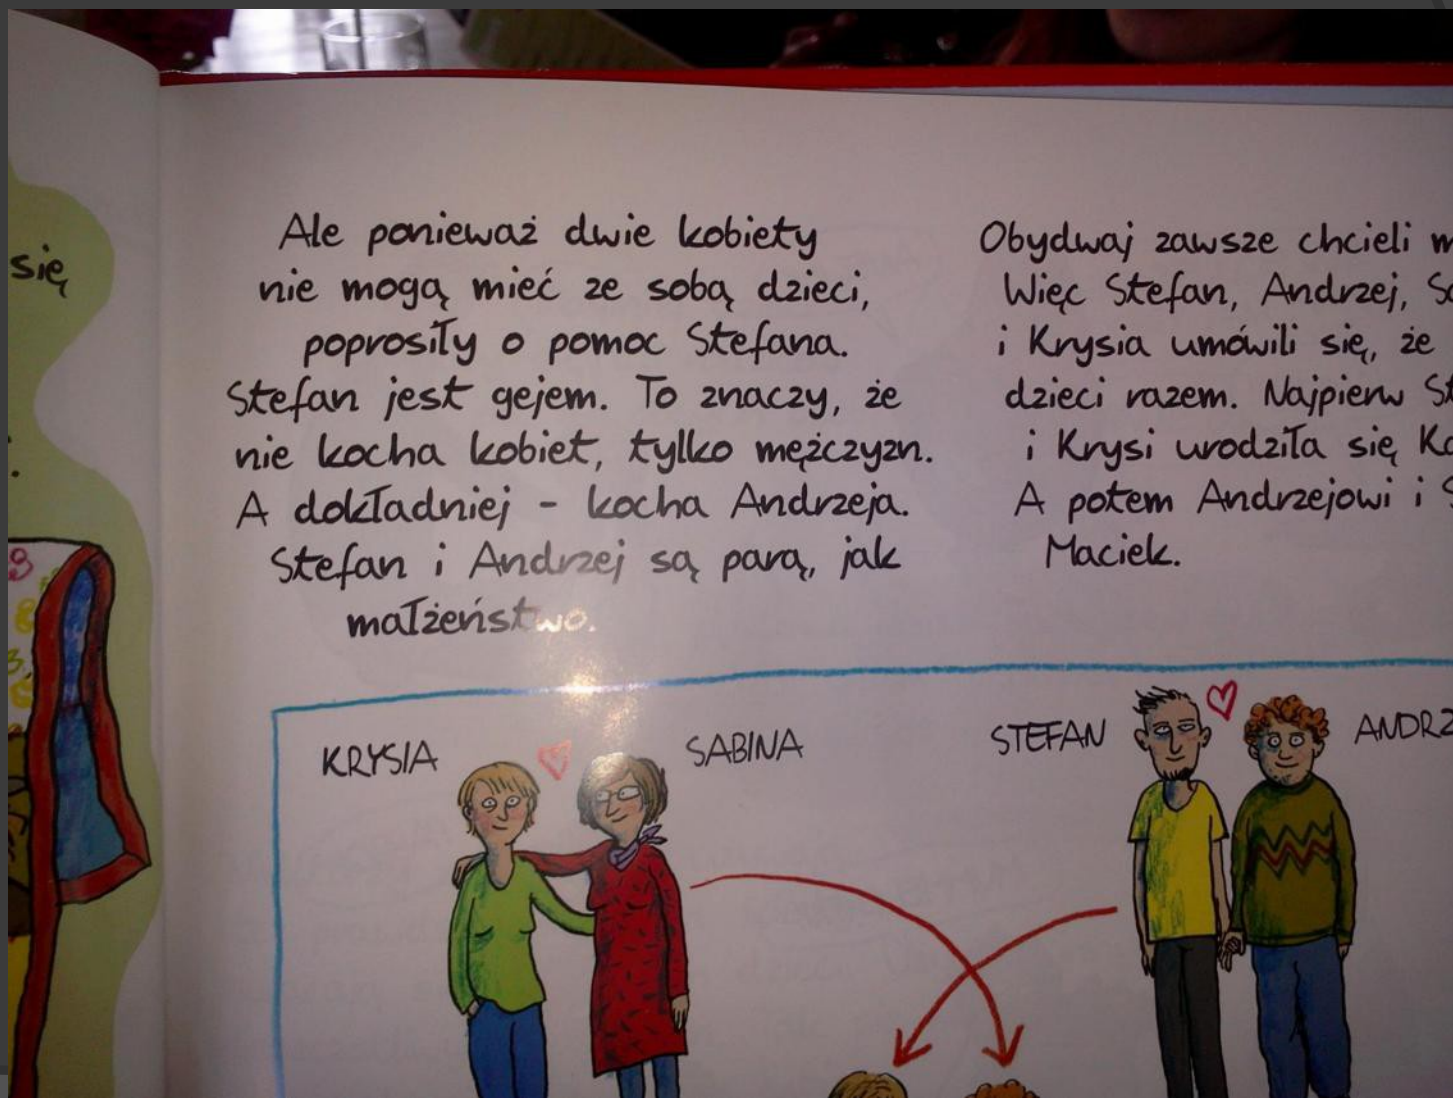 się
Ale ponieważ dwie kobiety
nie mogą mieć ze sobą dzieci,
poprosiły o pomoc Stefana.
Stefan jest gejem. To znaczy, że
nie kocha kobiet, tylko mężczyzn.
A dokładniej - kocha Andrzeja.
Stefan i Andrzej są parą, jak
małżeństwo.
Obydwaj zawsze chcieli
Więc Stefan, Andrzej,
i Krysia umówili się, że
dzieci razem. Najpierw
i Krysi urodziła się
A potem Andrzejowi i
Maciek.
KRYSIA
SABINA
STEFAN